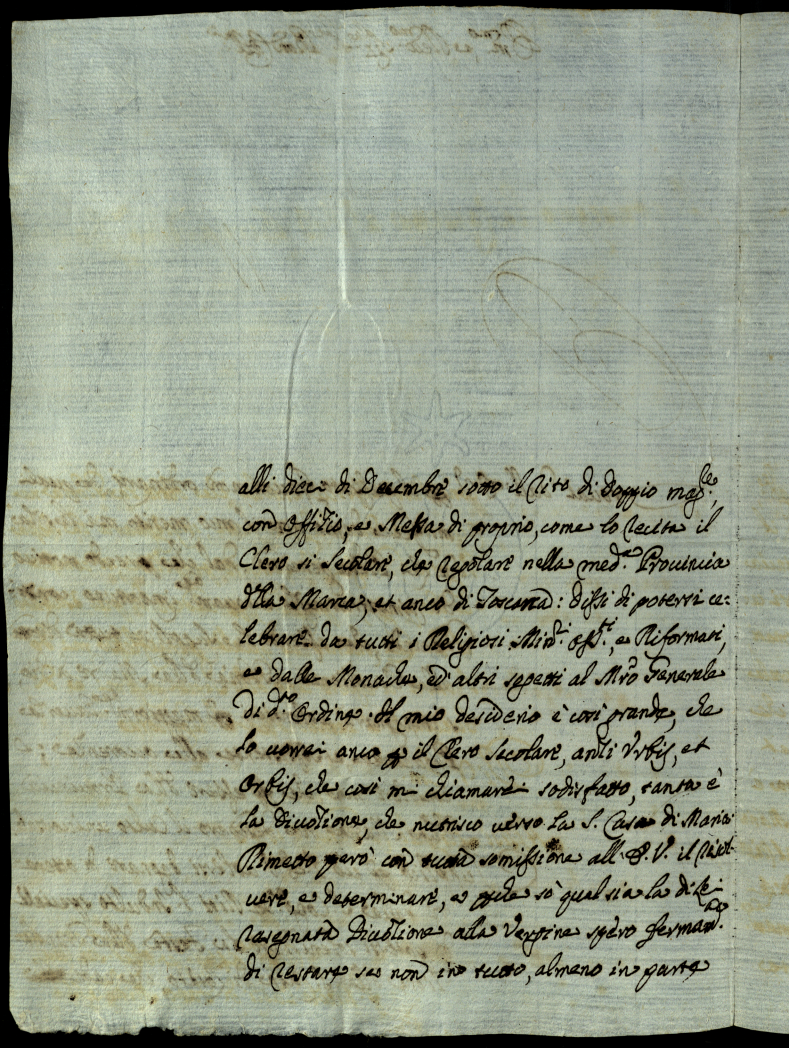 alli diece di Decembre sotto il Rito di Doppio mag:le,
con Offizio, e Messa di proprio, come lo recita il
Clero si Secolare, che regolare nella med:a Provincia
d'lla Marca, et anco di Toscana: dissi di potersi ce:
lebrare da tutti i Religiosi Min:i Oss:ti, e Riformati,
e dalle Monache, ed'altri sogetti al Mr̃o Generale
di d:to Ordine. Il mio desiderio è così grande, che
lo vorrei anco p il Clero Secolare, anzi Vrbis, et
Orbis, che così mi chiamarei sodisfatto, tanta è
la Divozione, che nutrisco verso la S. Casa di Maria:
Rimetto però con tutta somissione all. P. V. il risol
vere, e determinare, e pche sò qual sia la di Lei
rasegnata Divozione alla Vergine spero fermam:te
di restare se non in tutto, almeno in parte